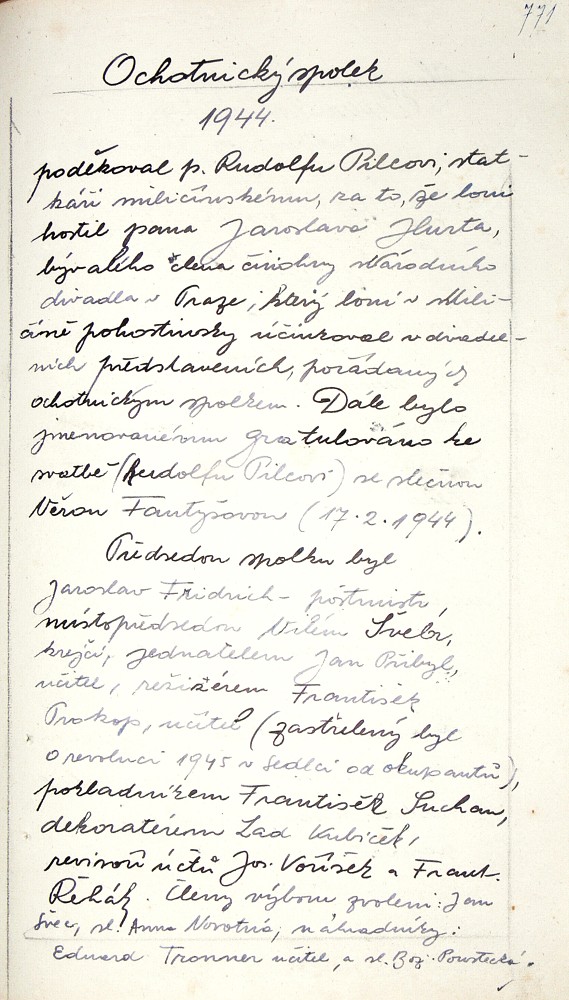 771
Ochotnický spolek
1944.
poděkoval p. Rudolfu Pilcovi, stat-
káři miličínskému, za to, že loni
hostil pana Jaroslava Hurta,
bývalého člena činohry Národního
divadla v Praze, který loni v Mili-
číně pohostinsky účinkoval v divadel-
ních představeních, pořádaných
ochotnickým spolkem. Dále bylo
jmenovanému gratulováno ke
svatbě (Rudolfu Pilcovi) se slečnou
Věrou Fantyšovou (17.2.1944).
Předsedou spolku byl
Jaroslav Fridrich - póstmistr,
místopředsedou Vilém Švehr,
krejčí, jednatelem Jan Přibyl,
učitel, režizérem František
Prokop, učitel (zastřelený byl
o revoluci 1945 v Sedlci od okupantů),
pokladníkem František Suchan,
dekoratérem Lad Kubíček,
revisoři účtů Jos. Voříšek a Frant.
Řehák. Členy výboru zvoleni: Jan
Švec, sl. Anna Novotná, náhradníky:
Eduard Tronner učitel, a sl. Bož.